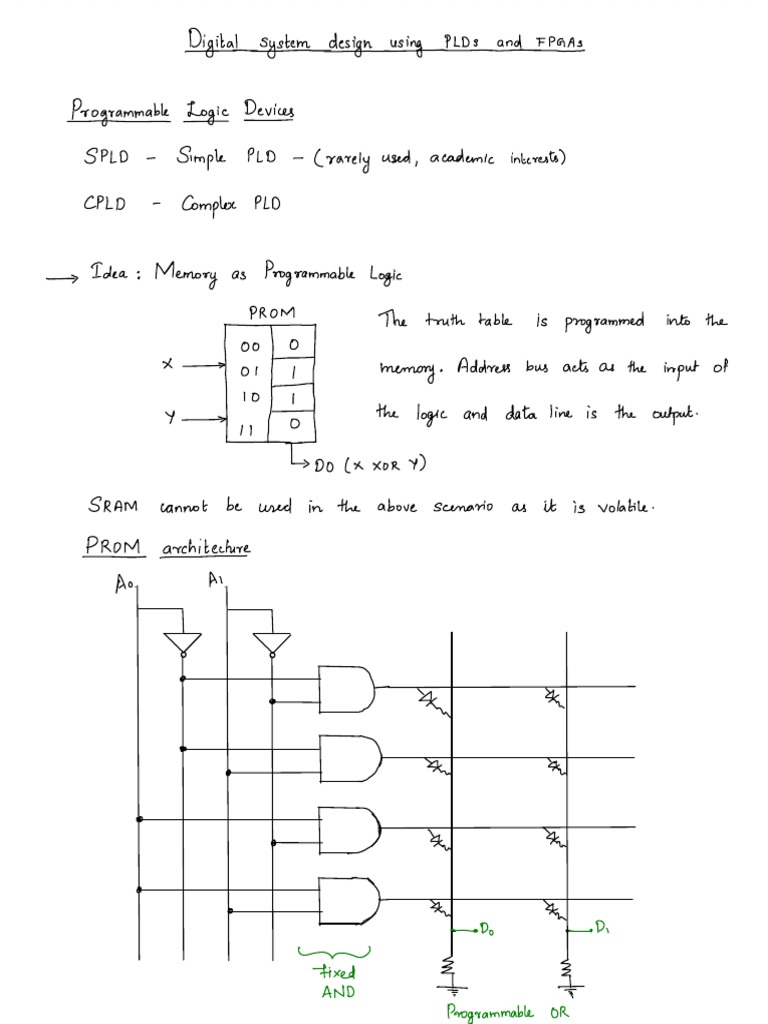 Digital system design using PLDs and FPGAs
Programmable Logic Devices
SPLD - Simple PLD - (rarely used, academic interests)
CPLD - Complex PLD
→ Idea : Memory as Programmable Logic
PROM
The truth table is programmed into the
memory. Address bus acts as the input of
the logic and data line is the output.
X
Y
00 0
01 1
10 1
11 0
DO (X XOR Y)
SRAM cannot be used in the above scenario as it is volatile.
PROM architecture
A0 A1
D0 D1
fixed
AND
Programmable OR